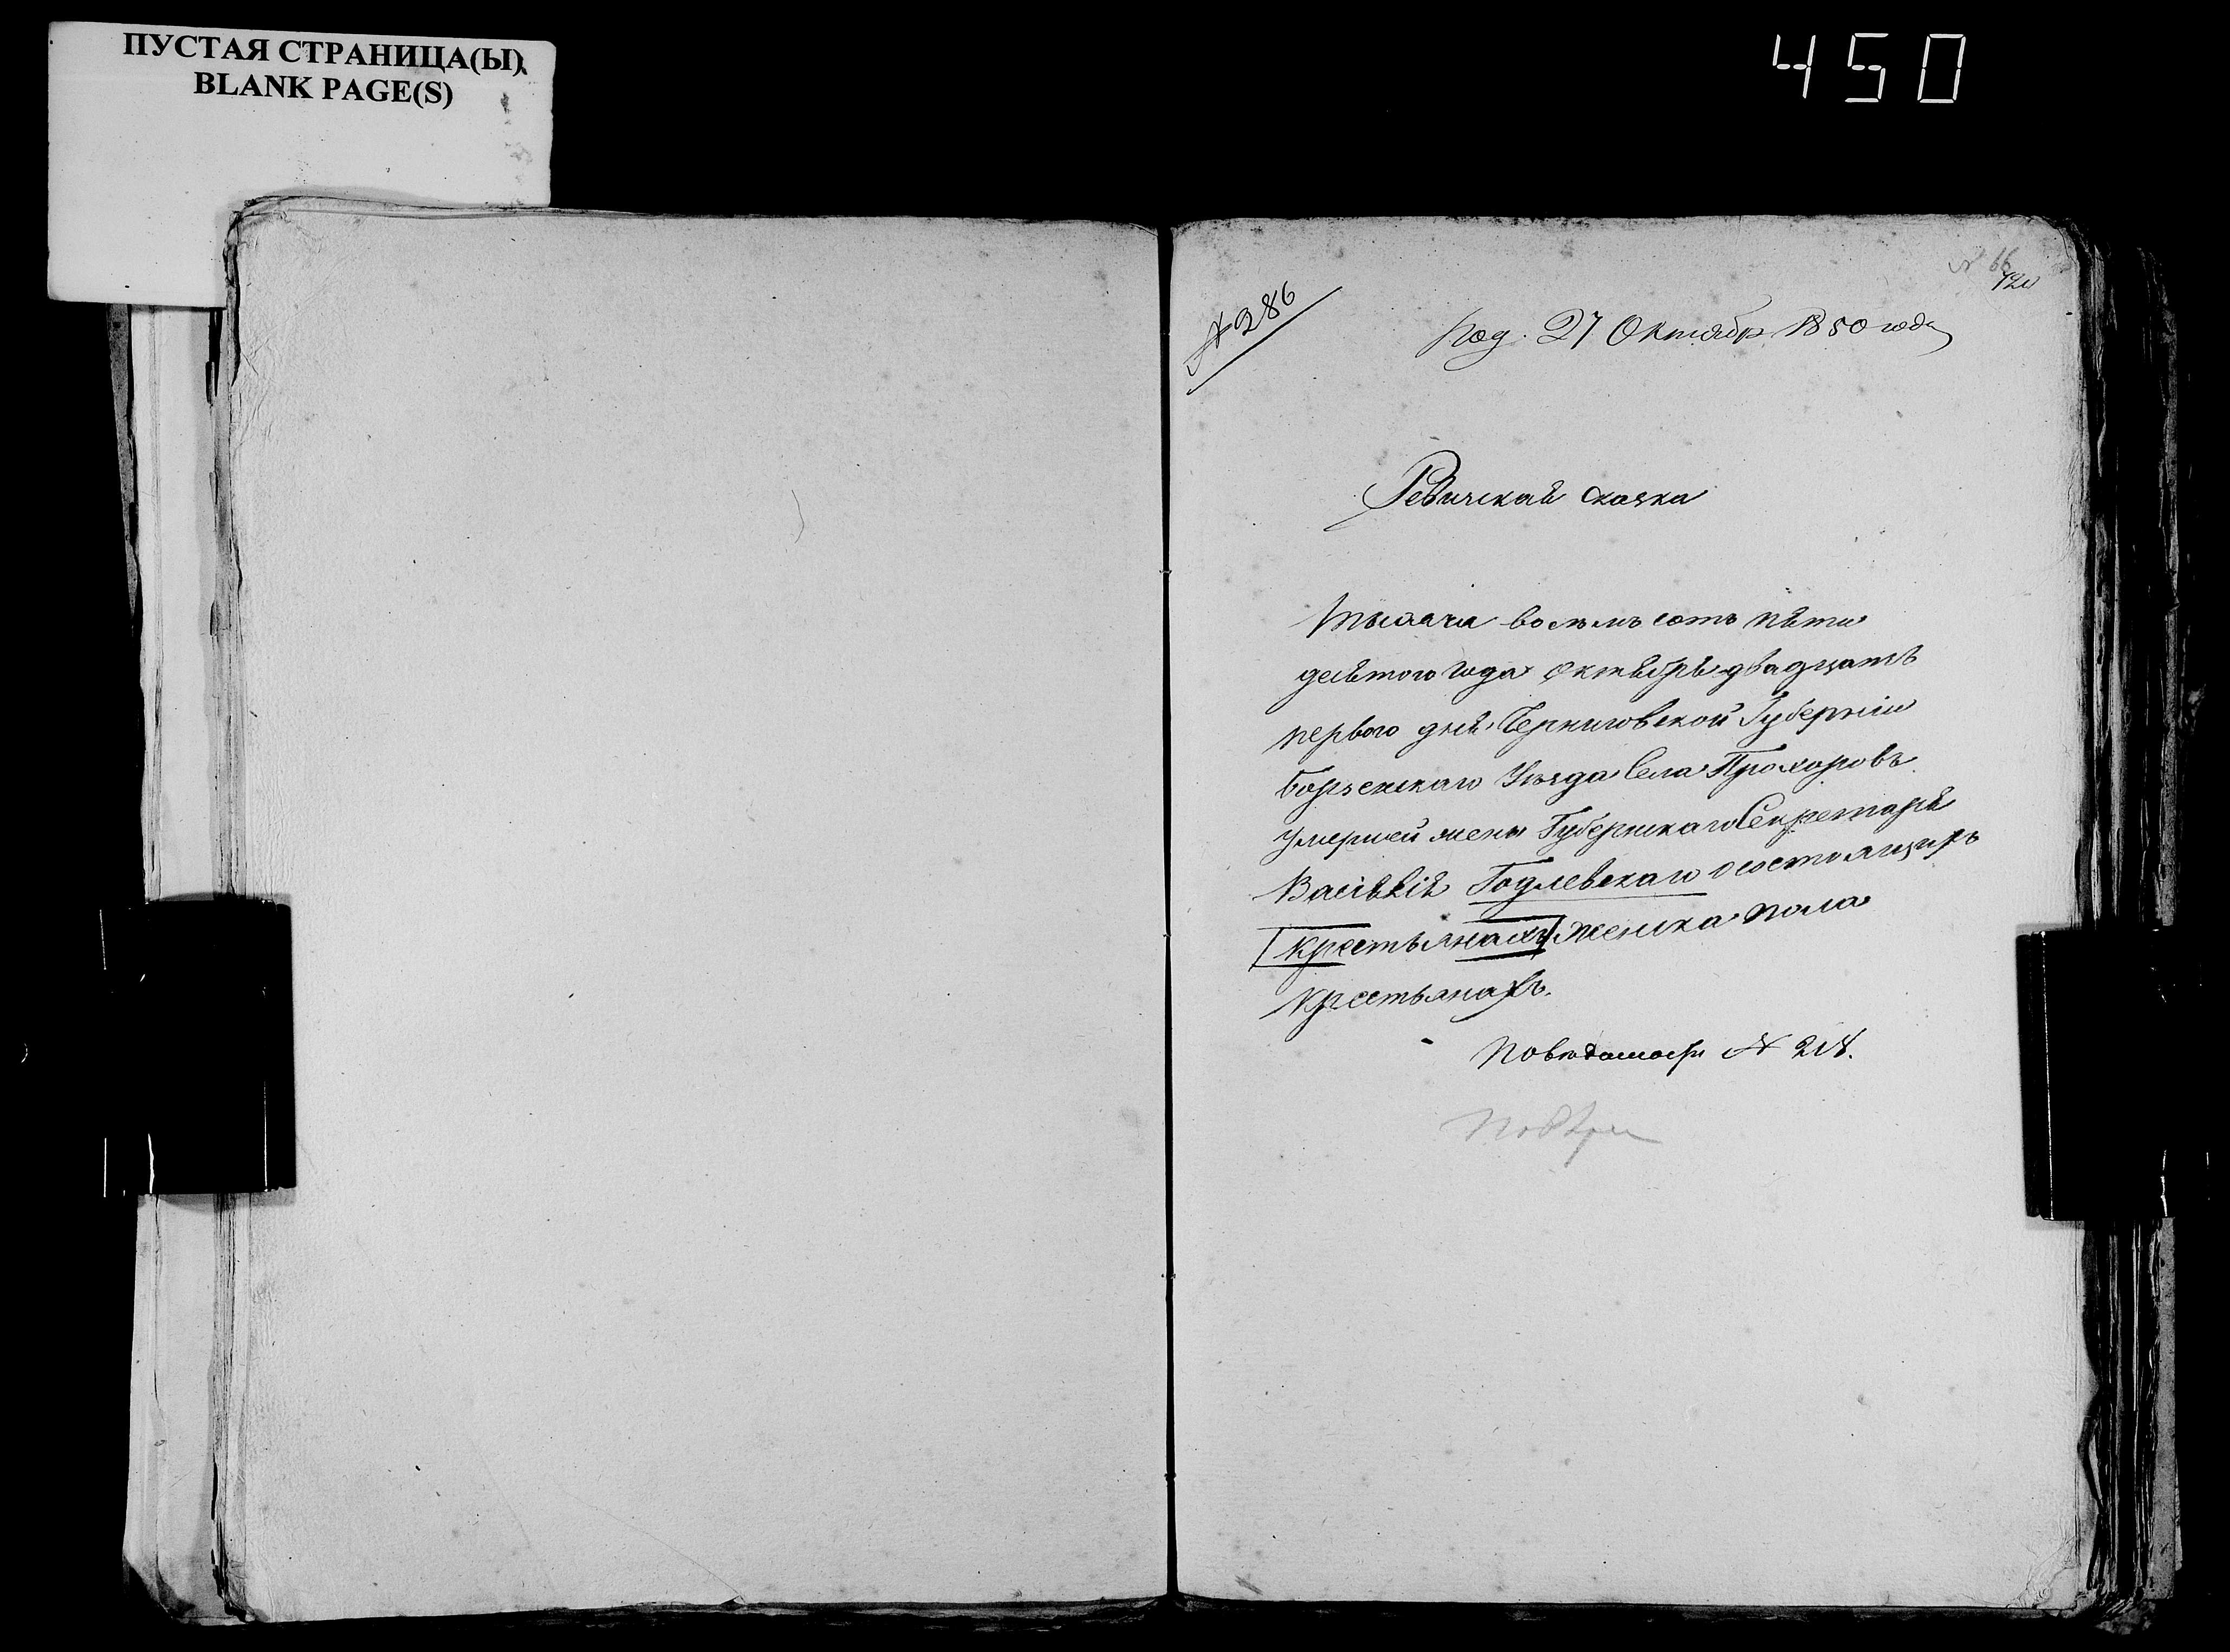 ПУСТАЯ СТРАНИЦА(Ы)
BLANK PAGE(S)
450
№ 66
№ 286
Под. 27 Октября 1850 года
Ревизская сказка
Тысяча восемъ сотъ пяти
десятого года Октября двадцать
первого дня Черниговской Губернии
Борзенскаго Уѣзда Села Прохоровъ
умершей жены Губернскаго Секретаря
Василія Годлевскаго о состоящихъ
крестьянахъ женска пола
крестьянахъ.
По ведомости № 218.